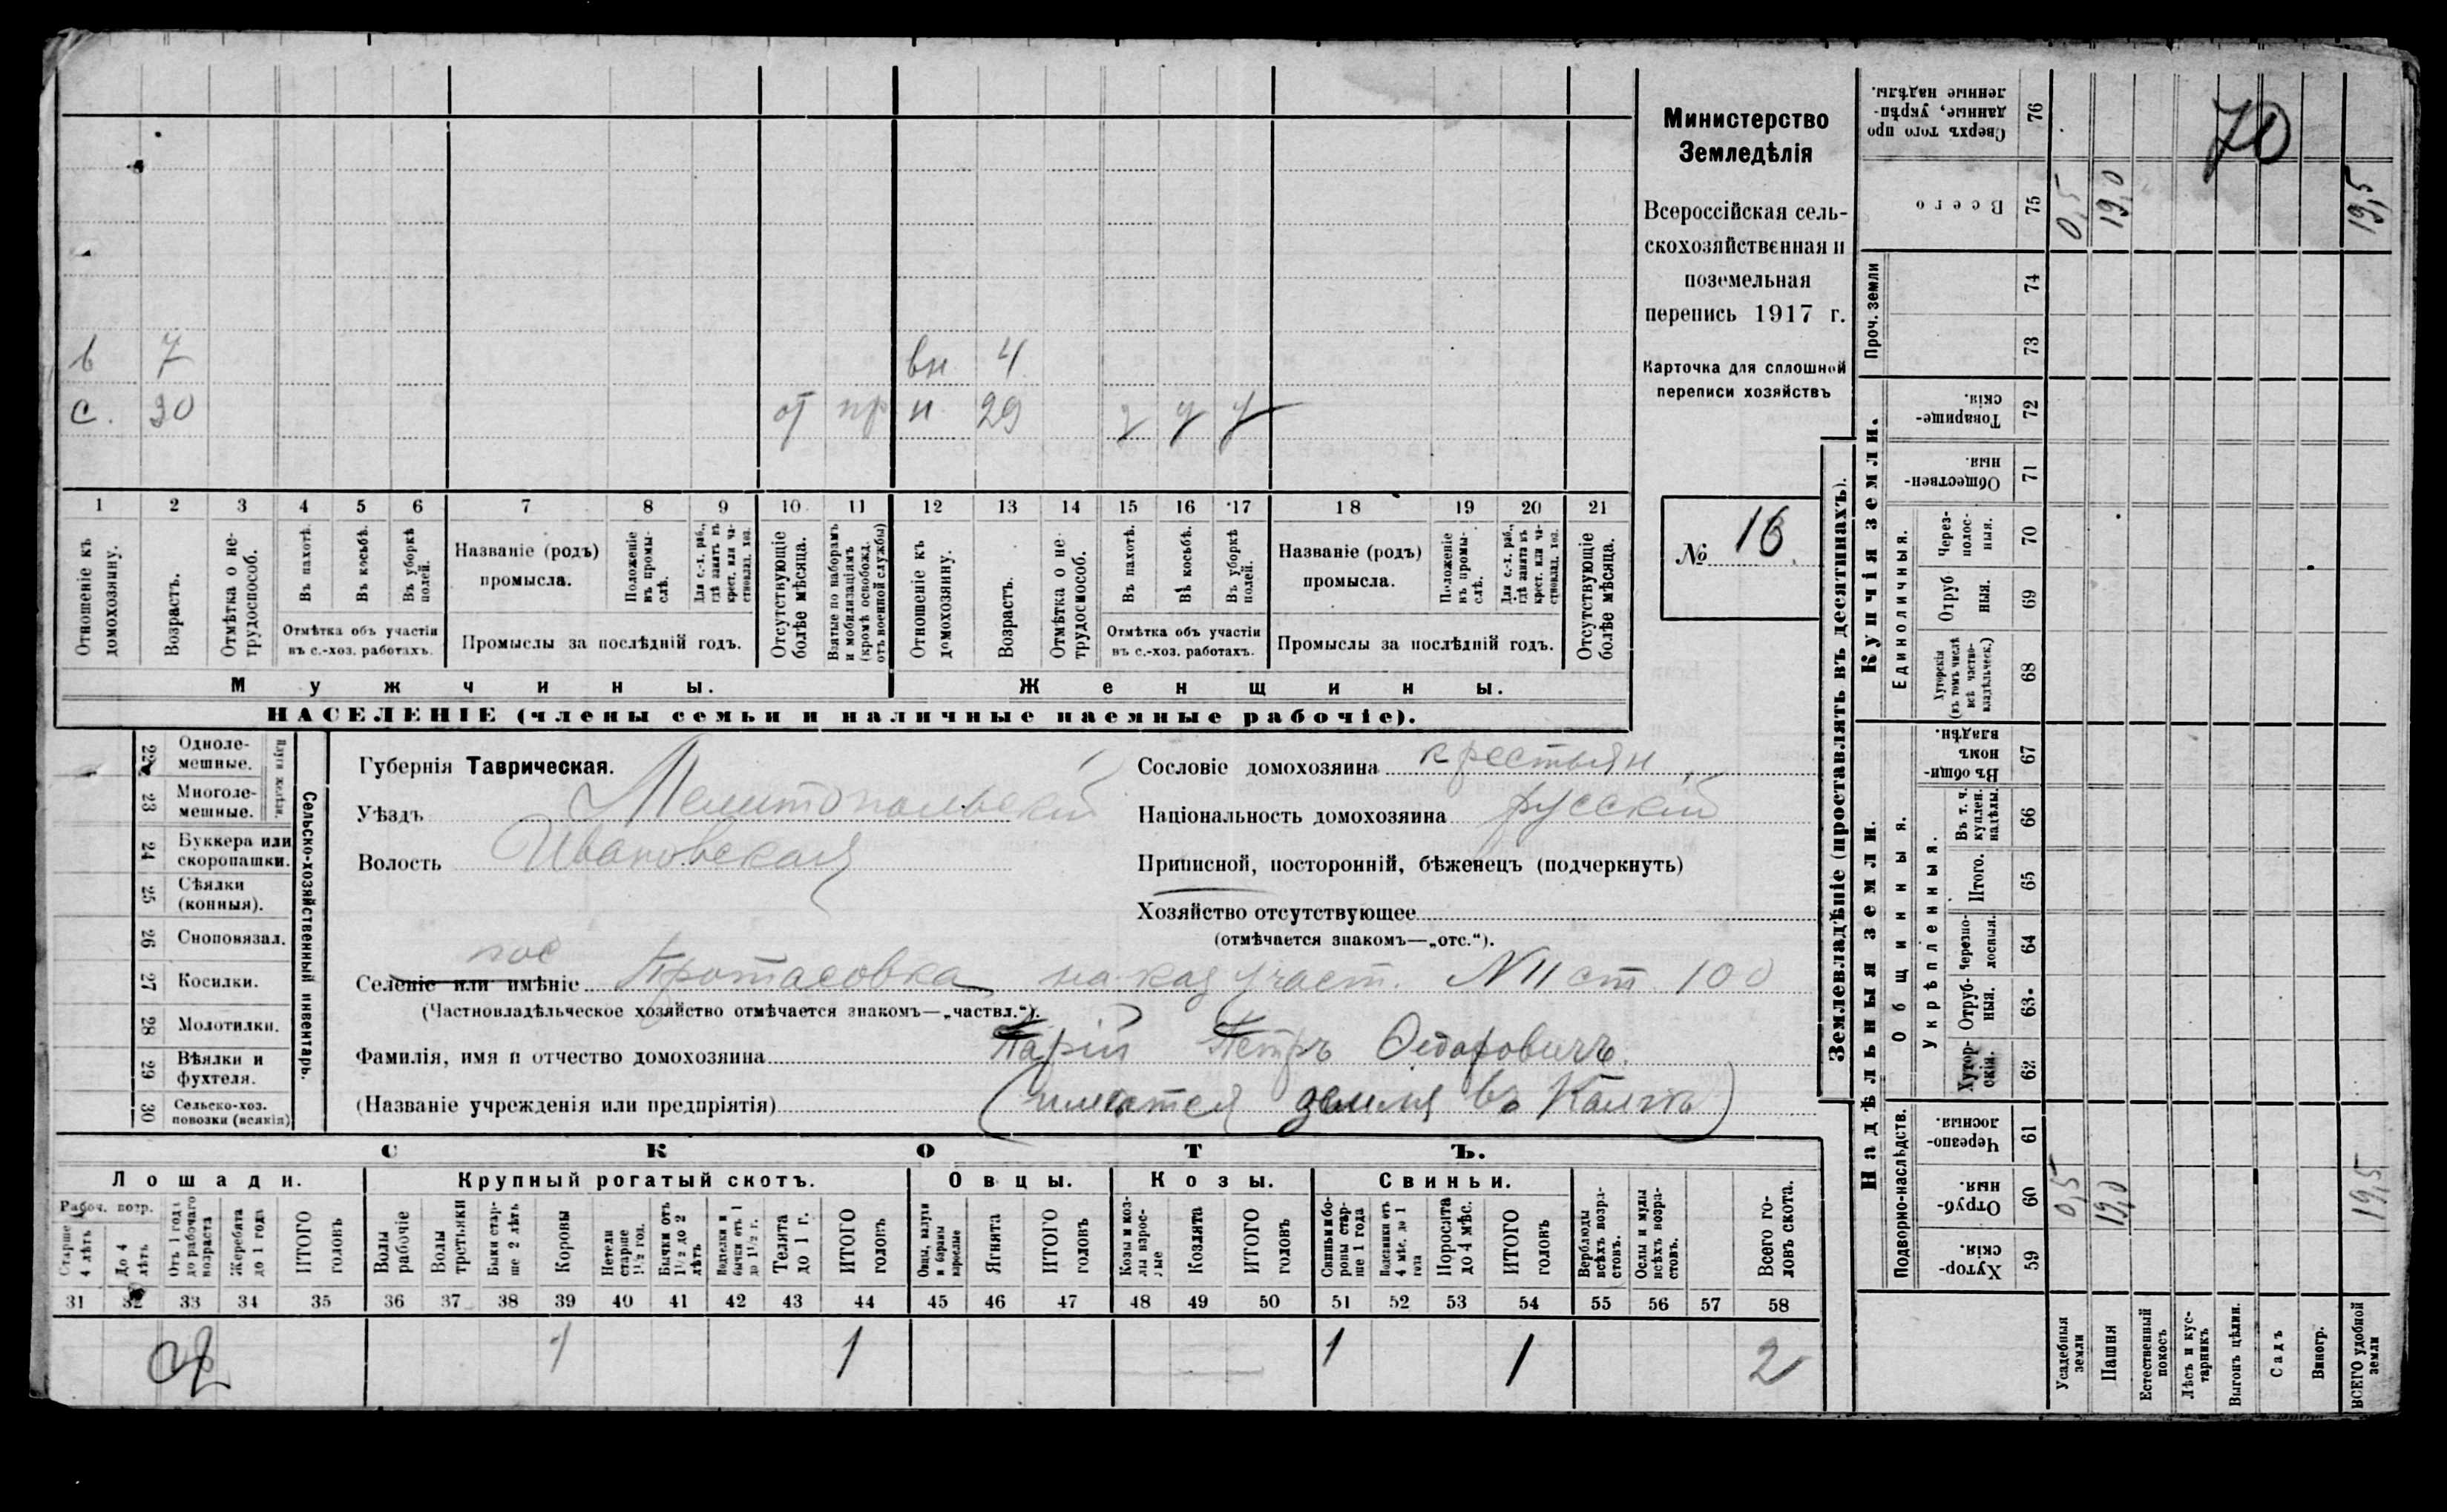 в 7 вн 4
с. 30 от пр н 29 у у у
1 2 3 4 5 6 7 8 9 10 11 12 13 14 15 16 17 18 19 20 21
Отношеніе къ домохозяину.
Возрастъ.
Отмѣтка о не-трудоспособ.
Въ пахотѣ.
Въ косьбѣ.
Въ уборкѣ полей.
Отмѣтка объ участіи
въ с.-хоз. работахъ.
Названіе (родъ)
промысла.
Положеніе въ промы-слѣ.
Для с.-х. раб., гдѣ занятъ въ крест. или ча-стновлад. хоз.
Промыслы за послѣдній годъ.
Отсутствующіе болѣе мѣсяца.
Взятые по наборамъ и мобилизаціямъ (кромѣ освобожд. отъ военной службы)
Отношеніе къ домохозяину.
Возрастъ.
Отмѣтка о не-трудоспособ.
Въ пахотѣ.
Въ косьбѣ.
Въ уборкѣ полей.
Отмѣтка объ участіи
въ с.-хоз. работахъ.
Названіе (родъ)
промысла.
Положеніе въ промы-слѣ.
Для с.-х. раб., гдѣ занята въ крест. или ча-стновлад. хоз.
Промыслы за послѣдній годъ.
Отсутствующіе болѣе мѣсяца.
Мужчины.
Женщины.
НАСЕЛЕНІЕ (члены семьи и наличные наемные рабочіе).
Министерство
Земледѣлія
Всероссійская сель-
скохозяйственная и
поземельная
перепись 1917 г.
Карточка для сплошной
переписи хозяйствъ
№ 16
22 Одноле-мешные.
23 Многоле-мешные.
Плуги желѣзн.
24 Буккера или скоропашки.
25 Сѣялки (конныя).
26 Сноповязал.
27 Косилки.
28 Молотилки.
29 Вѣялки и фухтеля.
30 Сельско-хоз. повозки (всякія)
Сельско-хозяйственный инвентарь.
Губернія Таврическая.
Уѣздъ Мелитопольскій
Волость Ивановская
пос
Селеніе или имѣніе Протасовка на каз участ. N II ст. 100
(Частновладѣльческое хозяйство отмѣчается знакомъ—„частвл.“).
Фамилія, имя и отчество домохозяина Парій Петръ Ѳедоровичъ.
(Названіе учрежденія или предпріятія) (имеется земля въ
Сословіе домохозяина крестьян.
Національность домохозяина русскій
Приписной, посторонній, бѣженецъ (подчеркнуть)
Хозяйство отсутствующее
(отмѣчается знакомъ—„отс.“).
СКОТЪ.
Лошади. Крупный рогатый скотъ. Овцы. Козы. Свиньи.
Рабоч. потр.
Старше 4 лѣтъ
До 4 лѣтъ
Отъ 1 года до рабочаго возраста
Жеребята до 1 года
ИТОГО головъ
Волы рабочіе
Волы третьяки
Быки стар-ше 2 лѣтъ
Коровы
Нетели старше 1½ год.
Бычки отъ 1½ до 2 лѣтъ
Подтелки и бычки отъ 1 до 1½ г.
Телята до 1 г.
ИТОГО головъ
Овцы, валухи и бараны взрослые
Ягнята
ИТОГО головъ
Козы и коз-лы взрос-лые
Козлята
ИТОГО головъ
Свиньи и бо-ровы стар-ше 1 года
Подсвинки отъ 4 мѣс. до 1 года
Поросята до 4 мѣс.
ИТОГО головъ
Верблюды всѣхъ возра-стовъ.
Ослы и мулы всѣхъ возра-стовъ.
Всего го-ловъ скота.
31 32 33 34 35 36 37 38 39 40 41 42 43 44 45 46 47 48 49 50 51 52 53 54 55 56 57 58
1 1 1 1 2
Землевладѣніе (проставлять въ десятинахъ).
Купчія земли.
Надѣльныя земли.
Проч. земли
Единоличныя.
Общинныя.
Укрѣпленныя.
Подворно-наслѣдств.
Сверхъ того про данные, укрѣп-ленные надѣлы. 76
70
Всего 75 0,5 19,0 19,5
74
73
Товарище-скія. 72
Обществен-ныя. 71
Через-полос-ныя. 70
Отруб ныя. 69
Хуторскія (въ томъ числѣ всѣ частно-владѣльческ.) 68
Въ общи-номъ владѣн. 67
Въ т. ч. куплен. надѣлы. 66
Итого. 65
Черезпо-лосныя. 64
Отруб-ныя. 63
Хутор-скія. 62
Черезпо-лосныя. 61
Отруб-ныя. 60 0,5 19,0 19,5
Хутор-скія. 59
Усадебныя земли
Пашня
Естественный покосъ
Лѣсъ и кус-тарникъ
Выгонъ цѣлин.
Садъ
Виногр.
ВСЕГО удобной земли